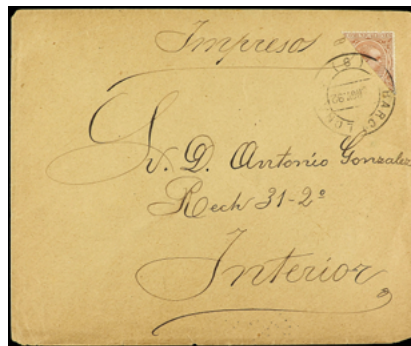 Impresos
BARCELONA
Sr. D. Antonio Gonzalez
Rech 31-2º
Interior